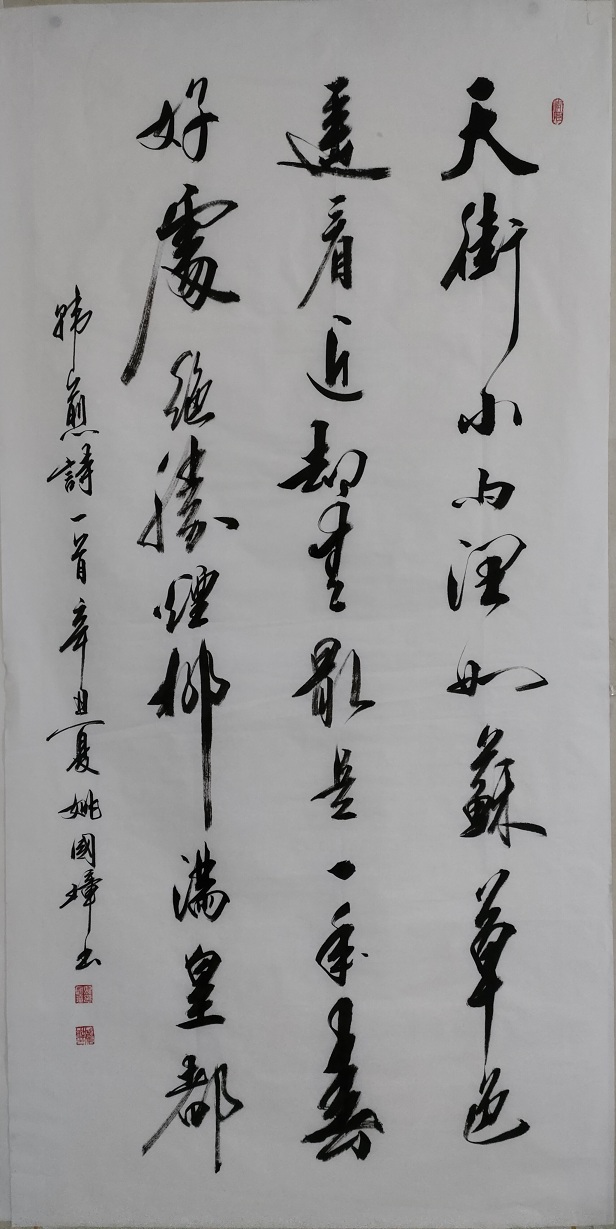 天街小雨潤如蘇草色
遥看近却無最是一年春
好處絕勝煙柳滿皇都
韓愈詩一首辛丑夏姚國璋书